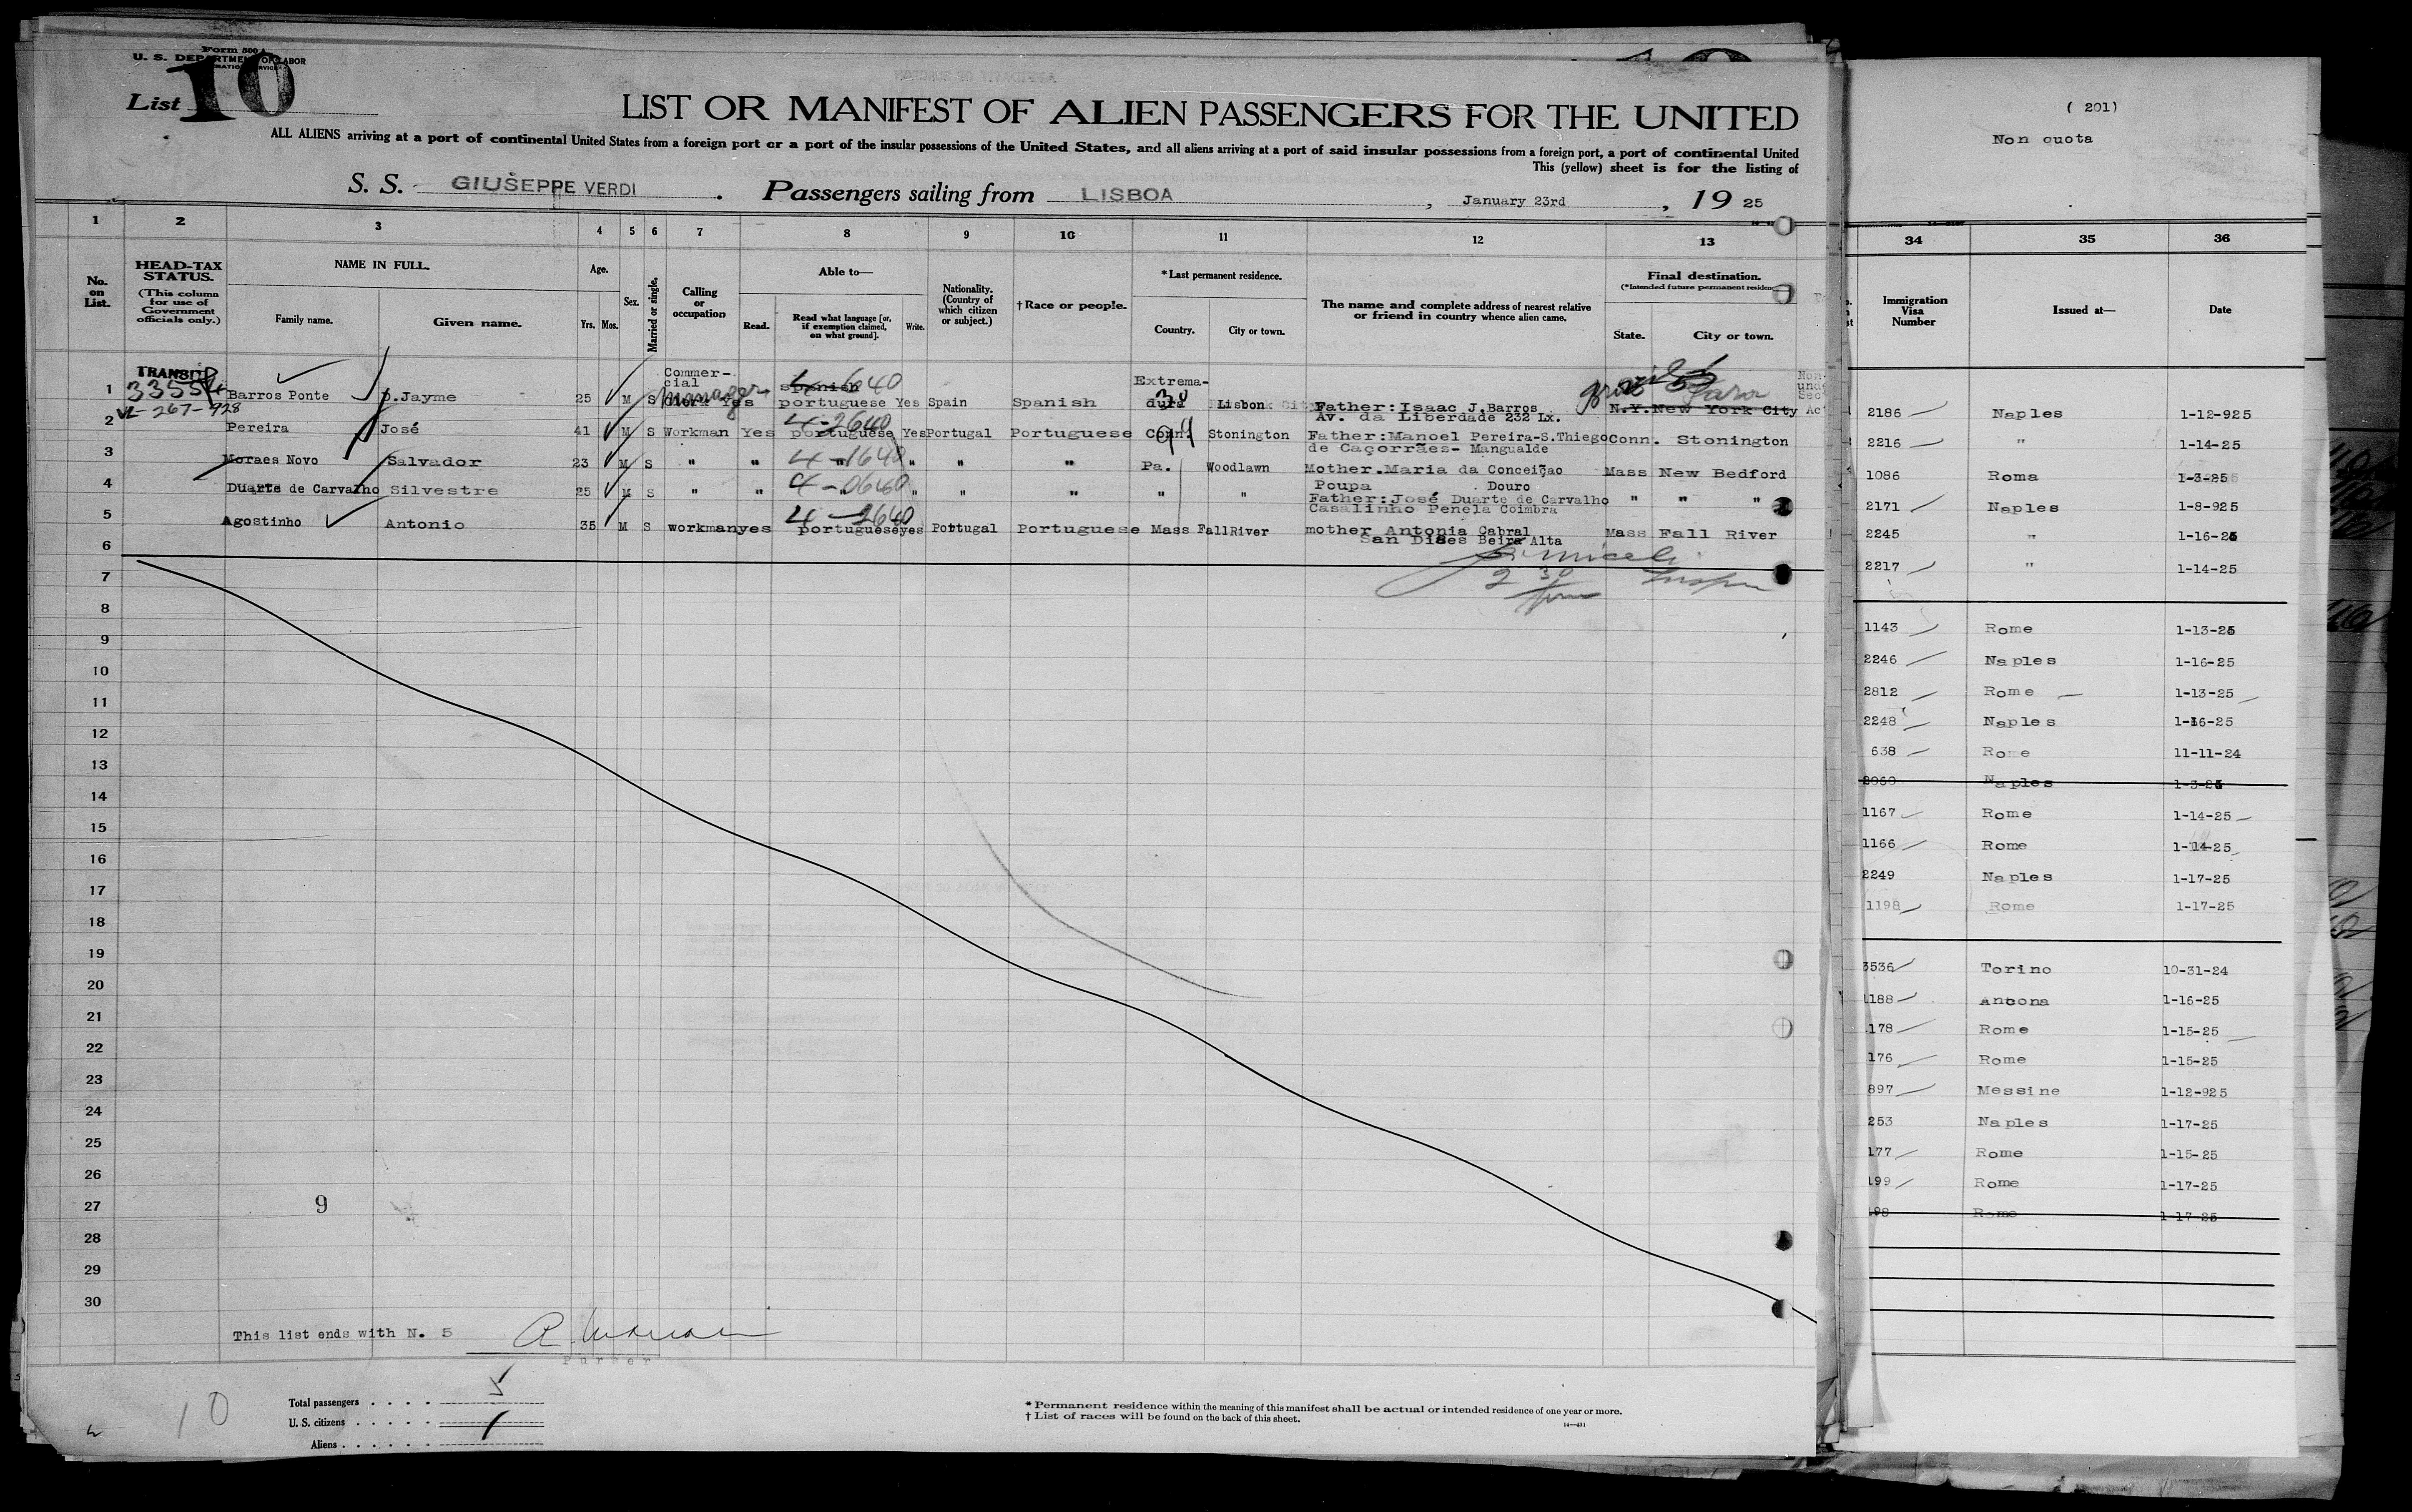 Form 500 A
U. S. DEPARTMENT OF LABOR
List 10
LIST OR MANIFEST OF ALIEN PASSENGERS FOR THE UNITED
ALL ALIENS arriving at a port of continental United States from a foreign port or a port of the insular possessions of the United States, and all aliens arriving at a port of said insular possessions from a foreign port, a port of continental United
This (yellow) sheet is for the listing of
S. S. GIUSEPPE VERDI . Passengers sailing from LISBOA , January 23rd , 19 25
1 2 3 4 5 6 7 8 9 10 11 12 13
No. on List.
HEAD-TAX STATUS.
(This column for use of Government officials only.)
NAME IN FULL.
Family name. Given name.
Age.
Yrs. Mos.
Sex.
Married or single.
Calling or occupation
Able to—
Read. Read what language [or, if exemption claimed, on what ground]. Write.
Nationality. (Country of which citizen or subject.)
†Race or people.
*Last permanent residence.
Country. City or town.
The name and complete address of nearest relative or friend in country whence alien came.
Final destination.
(*Intended future permanent residence
State. City or town.
TRANSIT
1 Barros Ponte Jayme 25 M S Commer-cial clerk Manager Yes spanish portuguese Yes Spain Spanish Extrema-dura Lisbon Father: Isaac J. Barros Av. da Liberdade 232 Lx. N.Y. New York City
2 Pereira José 41 M S Workman Yes portuguese Yes Portugal Portuguese Conn. Stonington Father: Manoel Pereira-S.Thiego de Caçorrães- Mangualde Conn. Stonington
3 Moraes Novo Salvador 23 M S " " " " " " Pa. Woodlawn Mother.Maria da Conceiçao Poupa . Douro Mass New Bedford
4 Duarte de Carvalho Silvestre 25 M S " " " " " " " " Father: José Duarte de Carvalho Casalinho Penela Coimbra " " "
5 Agostinho Antonio 35 M S workman yes portuguese yes Portugal Portuguese Mass FallRiver mother Antonia Cabral San Dises Beira Alta Mass Fall River
6
7
8
9
10
11
12
13
14
15
16
17
18
19
20
21
22
23
24
25
26
27 9
28
29
30
This list ends with N. 5
Purser
10
Total passengers . . . . 5
U. S. citizens . . . . .
Aliens . . . . . .
* Permanent residence within the meaning of this manifest shall be actual or intended residence of one year or more.
† List of races will be found on the back of this sheet.
14—431
( 201)
Non quota
34 35 36
Immigration Visa Number Issued at— Date
2186 Naples 1-12-925
2216 " 1-14-25
1086 Roma 1-3-25
2171 Naples 1-8-925
2245 " 1-16-25
2217 " 1-14-25
1143 Rome 1-13-25
2246 Naples 1-16-25
2812 Rome 1-13-25
2248 Naples 1-16-25
638 Rome 11-11-24
2060 Naples 1-3-25
1167 Rome 1-14-25
1166 Rome 1-14-25
2249 Naples 1-17-25
1198 Rome 1-17-25
3536 Torino 10-31-24
1188 Ancona 1-16-25
178 Rome 1-15-25
176 Rome 1-15-25
897 Messine 1-12-925
253 Naples 1-17-25
177 Rome 1-15-25
199 Rome 1-17-25
198 Rome 1-17-25